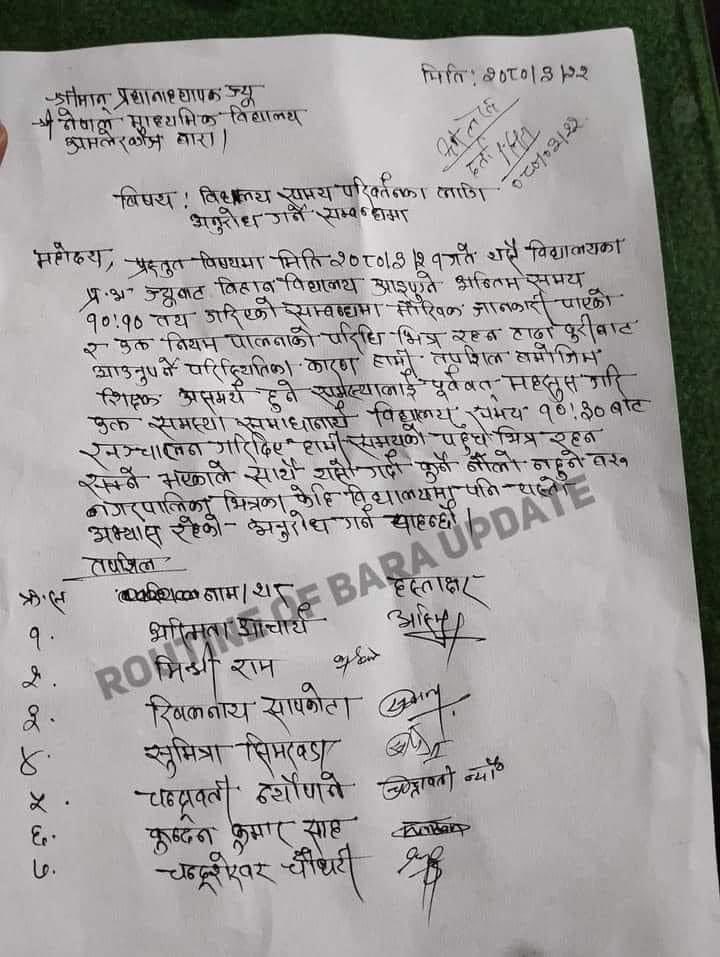 मिति: २०८०।३।२२
श्रीमान् प्रधानाध्यापक ज्यू
श्री नेपाल माध्यमिक विद्यालय
बारा।
दर्ता मिति
०८०।०३।२२
विषय: विद्यालय समय परिवर्तनका लागि
अनुरोध गर्ने सम्बन्धमा
महोदय, प्रस्तुत विषयमा मिति २०८०।३।२१ गते यसै विद्यालयका
प्र.अ ज्यूबाट बिहान विद्यालय आइपुग्ने अन्तिम समय
१०:१० तय गरिएको सम्बन्धमा मौखिक जानकारी पाएको
र उक्त नियम पालनाको परिधि भित्र रहन टाढा दुरीबाट
आउनुपर्ने परिस्थितिका कारण हामी तपशिल बमोजिम
शिक्षक असमर्थ हुने समस्यालाई पूर्ववत् महसुस गरि
उक्त समस्या समाधानार्थ विद्यालय समय १०:३० बाट
सञ्चालन गरिदिए हामी समयको पहुँच भित्र रहन
सक्ने भएकाले साथै यसो गर्दा कुनै नौलो नहुने बरु
नगरपालिका भित्रका केहि विद्यालयमा पनि यस्तो
अभ्यास रहेको अनुरोध गर्न चाहन्छौं।
तपशिल
क्र.स नाम।थर हस्ताक्षर
१. अस्मिता आचार्य
२. राम
३. सापकोटा
४. सुमित्रा सिमखडा
५. चन्द्रावती न्यौपाने चन्द्रावती
६. कुन्दन कुमार साह
७. चन्द्रशेखर चौधरी
ROUTINE OF BARA UPDATE